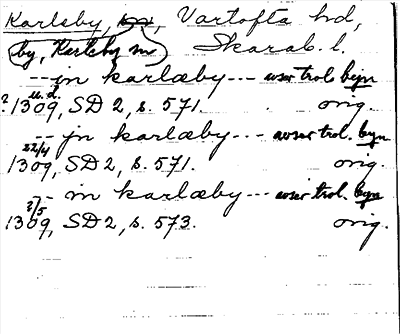 Karleby, Vartofta hd,
by, Karleby sn Skarab. l.
-- jn karlæby --- avser trol. byn
u.d.
? 1309, SD 2, s. 571. orig.
-- jn karlæby --- avser trol. byn
22/4
1309, SD 2, s. 571. orig.
-- in karlæby --- avser trol. byn
2/5
1309, SD 2, s. 573. orig.